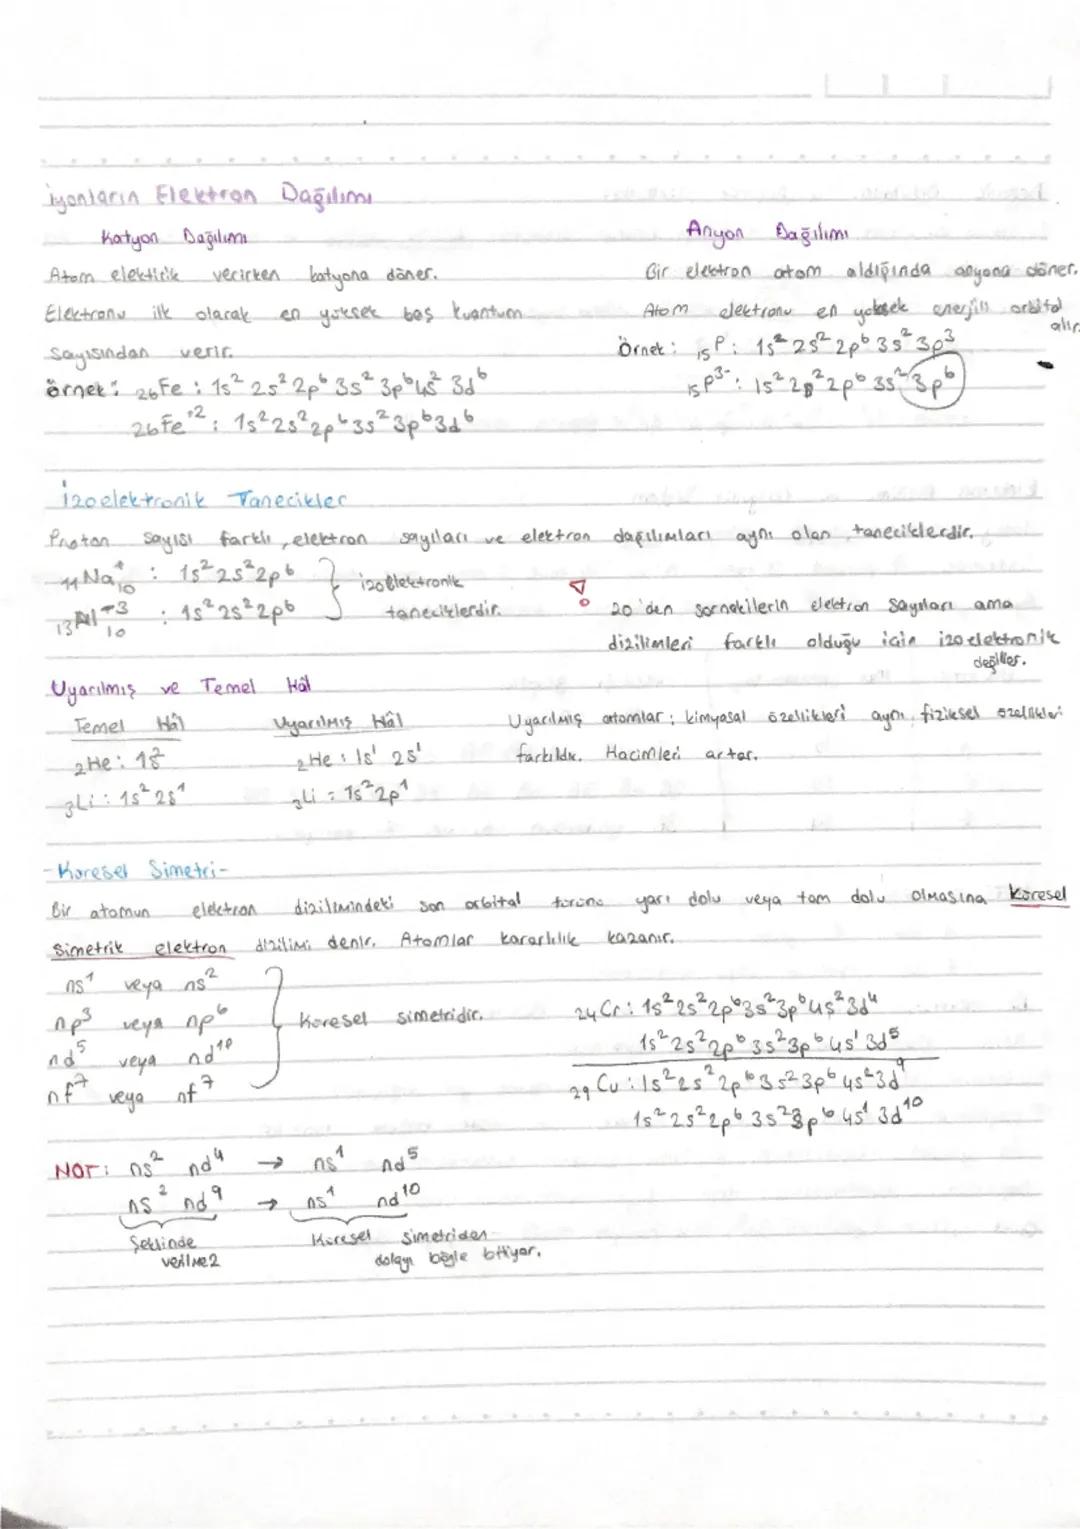 iyonların Elektron Dağılımı
Katyon Dağılımı
Atom elektirik verirken katyona döner.
Elektronu ilk olarak en yüksek baş kuantum
sayısından verir.
örnek: ₂₆Fe : 1s² 2s² 2p⁶ 3s² 3p⁶ 4s² 3d⁶
₂₆Fe⁺² : 1s² 2s² 2p⁶ 3s² 3p⁶ 3d⁶
Anyon Dağılımı
Bir elektron atom aldığında anyona döner.
Atom elektronu en yüksek enerjili orbital
alır.
Örnek : ₁₅P : 1s² 2s² 2p⁶ 3s² 3p³
₁₅P³⁻ : 1s² 2p² 2p⁶ 3s² 3p⁶
İzoelektronik Tanecikler
Proton sayısı farklı, elektron sayıları ve elektron dağılımları aynı olan taneciklerdir.
₁₁Na⁺₁₀ : 1s² 2s² 2p⁶
₁₃Al⁺³₁₀ : 1s² 2s² 2p⁶
izoelektronik
taneciklerdir.
20'den sornakilerin elektron sayıları ama
dizilimleri farklı olduğu için izoelektronik
değiller.
Uyarılmış ve Temel Hâl
Temel Hâl
₂He : 1s²
₃Li : 1s² 2s¹
Uyarılmış Hâl
₂He : 1s¹ 2s¹
₃Li : 1s² 2p¹
Uyarılmış atomlar ; kimyasal özellikleri aynı, fiziksel özellikleri
farklıdır. Hacimleri artar.
- Küresel Simetri -
Bir atomun elektron dizilimindeki son orbital türünü yarı dolu veya tam dolu olmasına Küresel
Simetrik elektron dizilimi denir. Atomlar kararlılık kazanır.
ns¹ veya ns²
np³ veya np⁶
nd⁵ veya nd¹⁰
nf⁷ veya nf⁷
Küresel simetridir.
₂₄Cr : 1s² 2s² 2p⁶ 3s² 3p⁶ 4s² 3d⁴
1s² 2s² 2p⁶ 3s² 3p⁶ 4s¹ 3d⁵
₂₉Cu : 1s² 2s² 2p⁶ 3s² 3p⁶ 4s² 3d⁹
1s² 2s² 2p⁶ 3s² 3p⁶ 4s¹ 3d¹⁰
NOT : ns² nd⁴ → ns¹ nd⁵
ns² nd⁹ → ns¹ nd¹⁰
Şeklinde
verilmez
Küresel simetriden
dolayı böyle bitiyor.